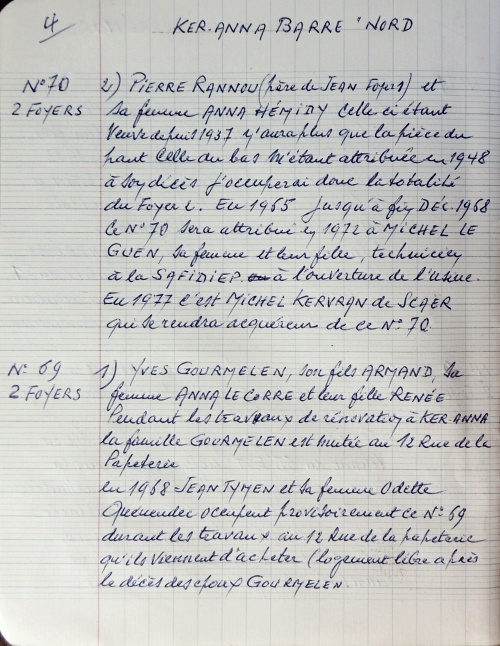 4
KER-ANNA BARRE "NORD
N° 70 2) PIERRE RANNOU (père de JEAN Foyer 1) et
2 FOYERS sa femme ANNA HÉMIDY Celle ci étant
Veuve depuis 1937 n'aura plus que la pièce du
haut Celle du bas m'étant attribuée en 1948
à son décès j'occuperai donc la totalité
du Foyer 2. EN 1965 Jusqu'à fin DÉC. 1968
Ce N° 70 sera attribué en 1972 à MICHEL LE
GUEN, sa femme et leur fille, technicien
à la SAFIDIEP. à l'ouverture de l'usine.
En 1977 c'est MICHEL KERVRAN de SCAER
qui se rendra acquéreur de ce N° 70
N° 69 1) YVES GOURMELEN, son fils ARMAND, sa
2 FOYERS femme ANNA LE CORRE et leur fille RENÉE
Pendant les travaux de rénovation à KER-ANNA
la famille GOURMELEN est mutée au 12 Rue de la
Papeterie
en 1968 JEAN TYMEN et sa femme Odette
Quéméner occupent provisoirement ce N° 69
durant les travaux au 12 Rue de la papeterie
qu'ils viennent d'acheter (logement libre après
le décès des époux GOURMELEN.